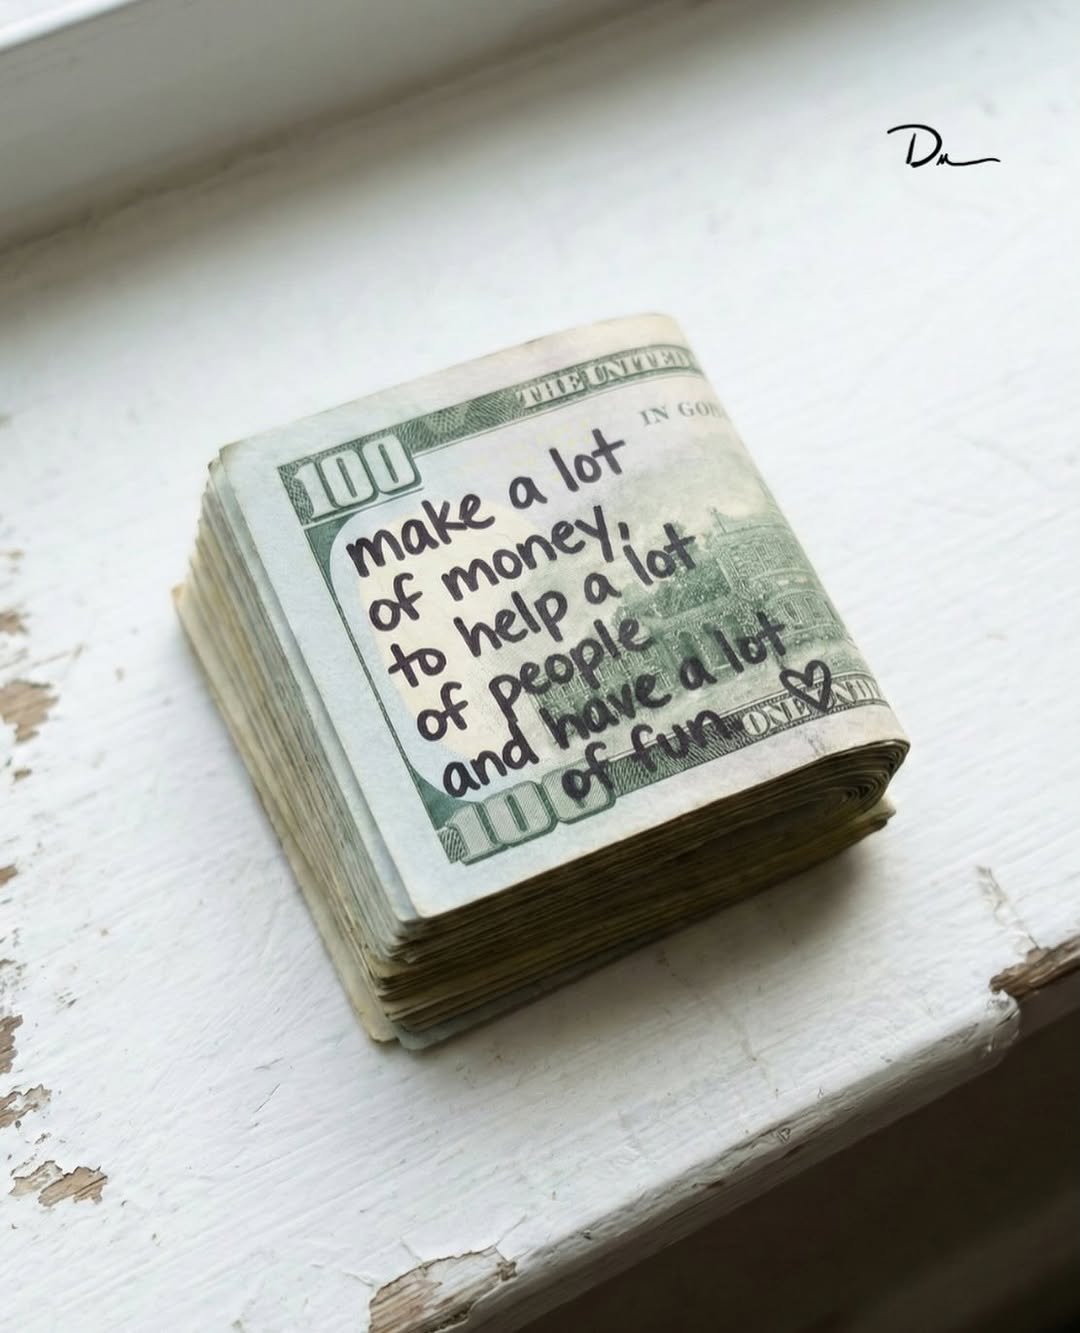 Dm
100
THE UNITED
IN GO
make a lot
of money,
to help a lot
of people
and have a lot
of fun ♡
ONE
100